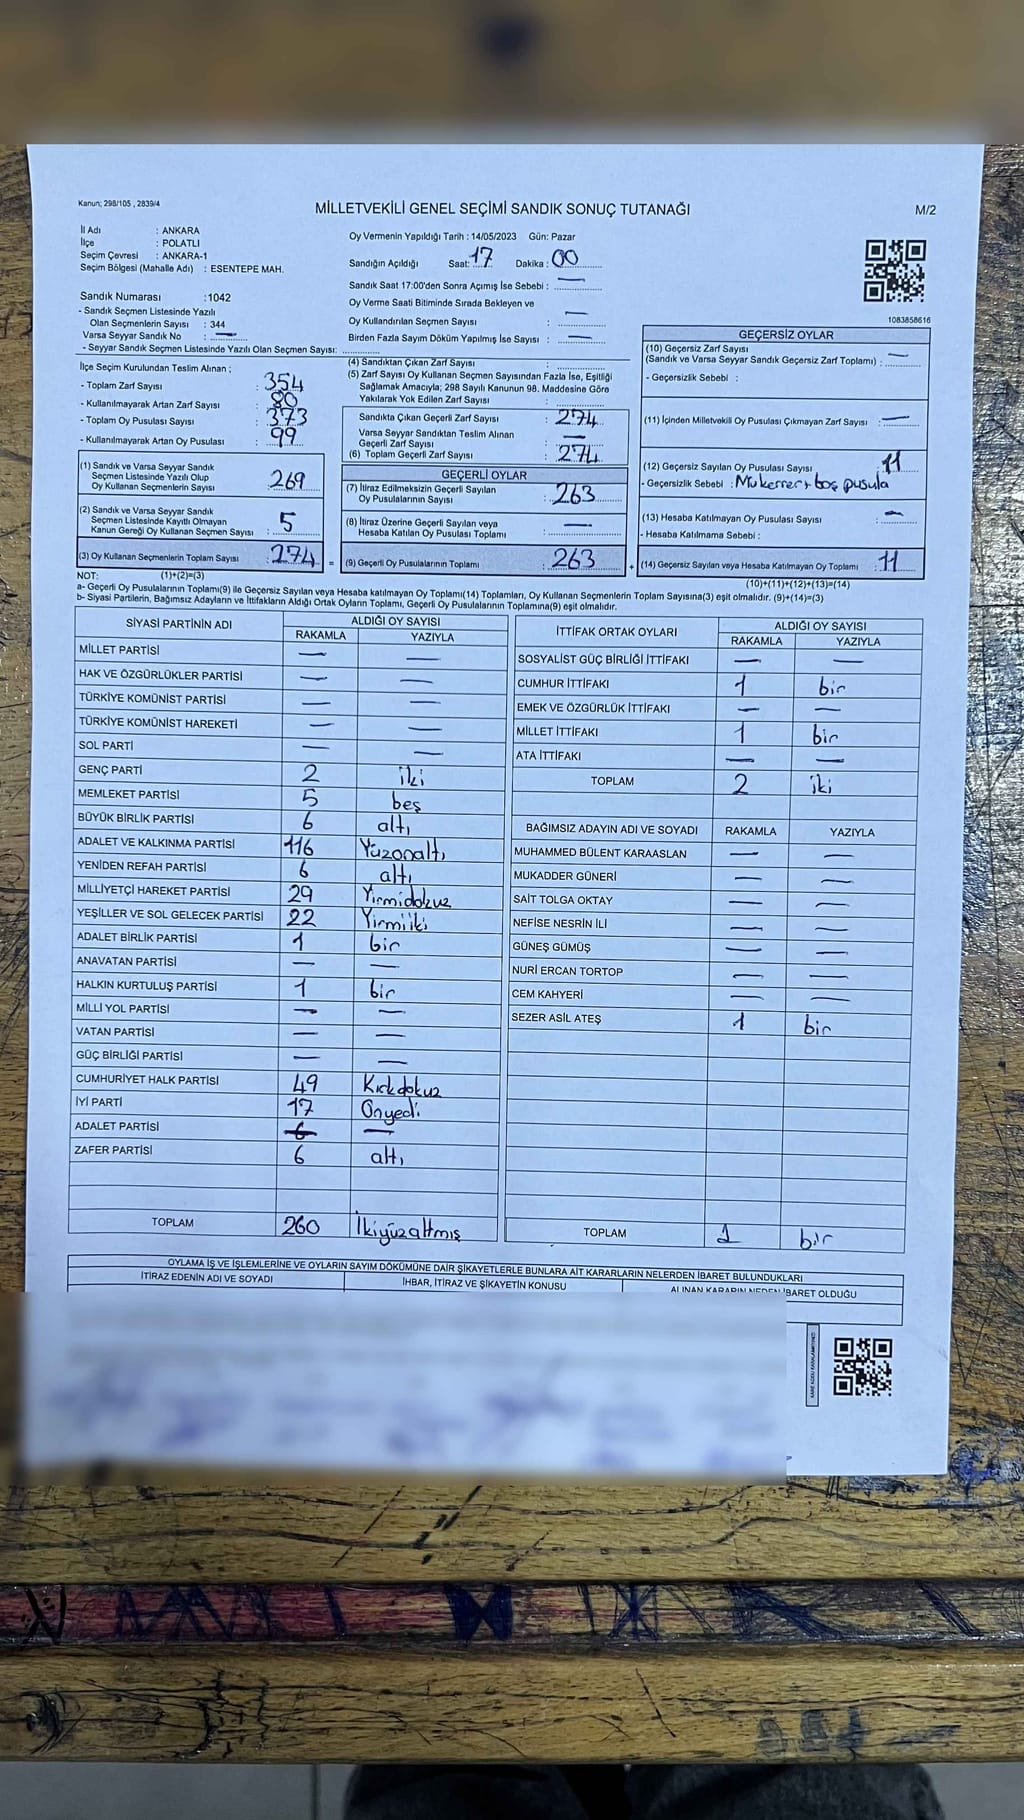 Kanun; 298/105 , 2839/4
MİLLETVEKİLİ GENEL SEÇİMİ SANDIK SONUÇ TUTANAĞI
M/2
İl Adı : ANKARA
İlçe : POLATLI
Seçim Çevresi : ANKARA-1
Seçim Bölgesi (Mahalle Adı) : ESENTEPE MAH.
Sandık Numarası :1042
- Sandık Seçmen Listesinde Yazılı
Olan Seçmenlerin Sayısı : 344
Varsa Seyyar Sandık No : —
- Seyyar Sandık Seçmen Listesinde Yazılı Olan Seçmen Sayısı:
Oy Vermenin Yapıldığı Tarih : 14/05/2023 Gün: Pazar
Sandığın Açıldığı Saat: 17 Dakika : 00
Sandık Saat 17:00'den Sonra Açımış İse Sebebi : —
Oy Verme Saati Bitiminde Sırada Bekleyen ve
Oy Kullandırılan Seçmen Sayısı : —
Birden Fazla Sayım Döküm Yapılmış İse Sayısı : —
1083858616
İlçe Seçim Kurulundan Teslim Alınan ;
- Toplam Zarf Sayısı : 354
- Kullanılmayarak Artan Zarf Sayısı : 80
- Toplam Oy Pusulası Sayısı : 373
- Kullanılmayarak Artan Oy Pusulası : 99
(1) Sandık ve Varsa Seyyar Sandık
Seçmen Listesinde Yazılı Olup
Oy Kullanan Seçmenlerin Sayısı : 269
(2) Sandık ve Varsa Seyyar Sandık
Seçmen Listesinde Kayıtlı Olmayan
Kanun Gereği Oy Kullanan Seçmen Sayısı : 5
(3) Oy Kullanan Seçmenlerin Toplam Sayısı : 274 =
(4) Sandıktan Çıkan Zarf Sayısı :
(5) Zarf Sayısı Oy Kullanan Seçmen Sayısından Fazla İse, Eşitliği
Sağlamak Amacıyla; 298 Sayılı Kanunun 98. Maddesine Göre
Yakılarak Yok Edilen Zarf Sayısı :
Sandıkta Çıkan Geçerli Zarf Sayısı : 274
Varsa Seyyar Sandıktan Teslim Alınan
Geçerli Zarf Sayısı : —
(6) Toplam Geçerli Zarf Sayısı : 274
GEÇERLİ OYLAR
(7) İtiraz Edilmeksizin Geçerli Sayılan
Oy Pusulalarının Sayısı : 263
(8) İtiraz Üzerine Geçerli Sayılan veya
Hesaba Katılan Oy Pusulası Toplamı : —
(9) Geçerli Oy Pusulalarının Toplamı : 263 +
GEÇERSİZ OYLAR
(10) Geçersiz Zarf Sayısı
(Sandık ve Varsa Seyyar Sandık Geçersiz Zarf Toplamı) : —
- Geçersizlik Sebebi :
(11) İçinden Milletvekili Oy Pusulası Çıkmayan Zarf Sayısı : —
(12) Geçersiz Sayılan Oy Pusulası Sayısı : 11
- Geçersizlik Sebebi : Mükerrer + boş pusula
(13) Hesaba Katılmayan Oy Pusulası Sayısı : —
- Hesaba Katılmama Sebebi :
(14) Geçersiz Sayılan veya Hesaba Katılmayan Oy Toplamı : 11
NOT: (1)+(2)=(3)
(10)+(11)+(12)+(13)=(14)
a- Geçerli Oy Pusulalarının Toplamı(9) ile Geçersiz Sayılan veya Hesaba katılmayan Oy Toplamı(14) Toplamları, Oy Kullanan Seçmenlerin Toplam Sayısına(3) eşit olmalıdır. (9)+(14)=(3)
b- Siyasi Partilerin, Bağımsız Adayların ve İttifakların Aldığı Ortak Oyların Toplamı, Geçerli Oy Pusulalarının Toplamına(9) eşit olmalıdır.
SİYASİ PARTİNİN ADI ALDIĞI OY SAYISI
RAKAMLA YAZIYLA
MİLLET PARTİSİ — —
HAK VE ÖZGÜRLÜKLER PARTİSİ — —
TÜRKİYE KOMÜNİST PARTİSİ — —
TÜRKİYE KOMÜNİST HAREKETİ — —
SOL PARTİ — —
GENÇ PARTİ 2 iki
MEMLEKET PARTİSİ 5 beş
BÜYÜK BİRLİK PARTİSİ 6 altı
ADALET VE KALKINMA PARTİSİ 116 Yüzonaltı
YENİDEN REFAH PARTİSİ 6 altı
MİLLİYETÇİ HAREKET PARTİSİ 29 Yirmidokuz
YEŞİLLER VE SOL GELECEK PARTİSİ 22 Yirmiiki
ADALET BİRLİK PARTİSİ 1 bir
ANAVATAN PARTİSİ — —
HALKIN KURTULUŞ PARTİSİ 1 bir
MİLLİ YOL PARTİSİ — —
VATAN PARTİSİ — —
GÜÇ BİRLİĞİ PARTİSİ — —
CUMHURİYET HALK PARTİSİ 49 Kırkdokuz
İYİ PARTİ 17 Onyedi
ADALET PARTİSİ — —
ZAFER PARTİSİ 6 altı
TOPLAM 260 İkiyüzaltmış
İTTİFAK ORTAK OYLARI ALDIĞI OY SAYISI
RAKAMLA YAZIYLA
SOSYALİST GÜÇ BİRLİĞİ İTTİFAKI — —
CUMHUR İTTİFAKI 1 bir
EMEK VE ÖZGÜRLÜK İTTİFAKI — —
MİLLET İTTİFAKI 1 bir
ATA İTTİFAKI — —
TOPLAM 2 iki
BAĞIMSIZ ADAYIN ADI VE SOYADI RAKAMLA YAZIYLA
MUHAMMED BÜLENT KARAASLAN — —
MUKADDER GÜNERİ — —
SAİT TOLGA OKTAY — —
NEFİSE NESRİN İLİ — —
GÜNEŞ GÜMÜŞ — —
NURİ ERCAN TORTOP — —
CEM KAHYERİ — —
SEZER ASİL ATEŞ 1 bir
TOPLAM 1 bir
OYLAMA İŞ VE İŞLEMLERİNE VE OYLARIN SAYIM DÖKÜMÜNE DAİR ŞİKAYETLERLE BUNLARA AİT KARARLARIN NELERDEN İBARET BULUNDUKLARI
İTİRAZ EDENİN ADI VE SOYADI İHBAR, İTİRAZ VE ŞİKAYETİN KONUSU ALINAN KARARIN NEDEN İBARET OLDUĞU